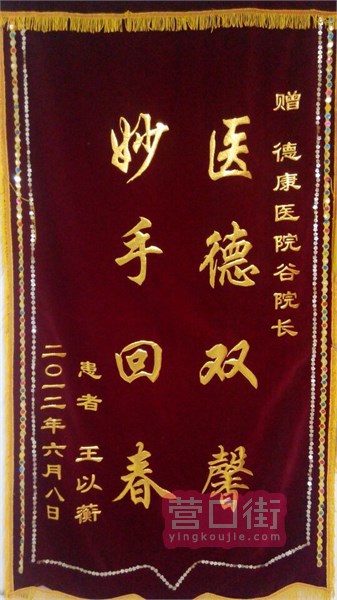 赠 德康医院谷院长
医德双馨
妙手回春
患者 王以蘅
二〇一二年六月八日
营口街
yingkoujie.com